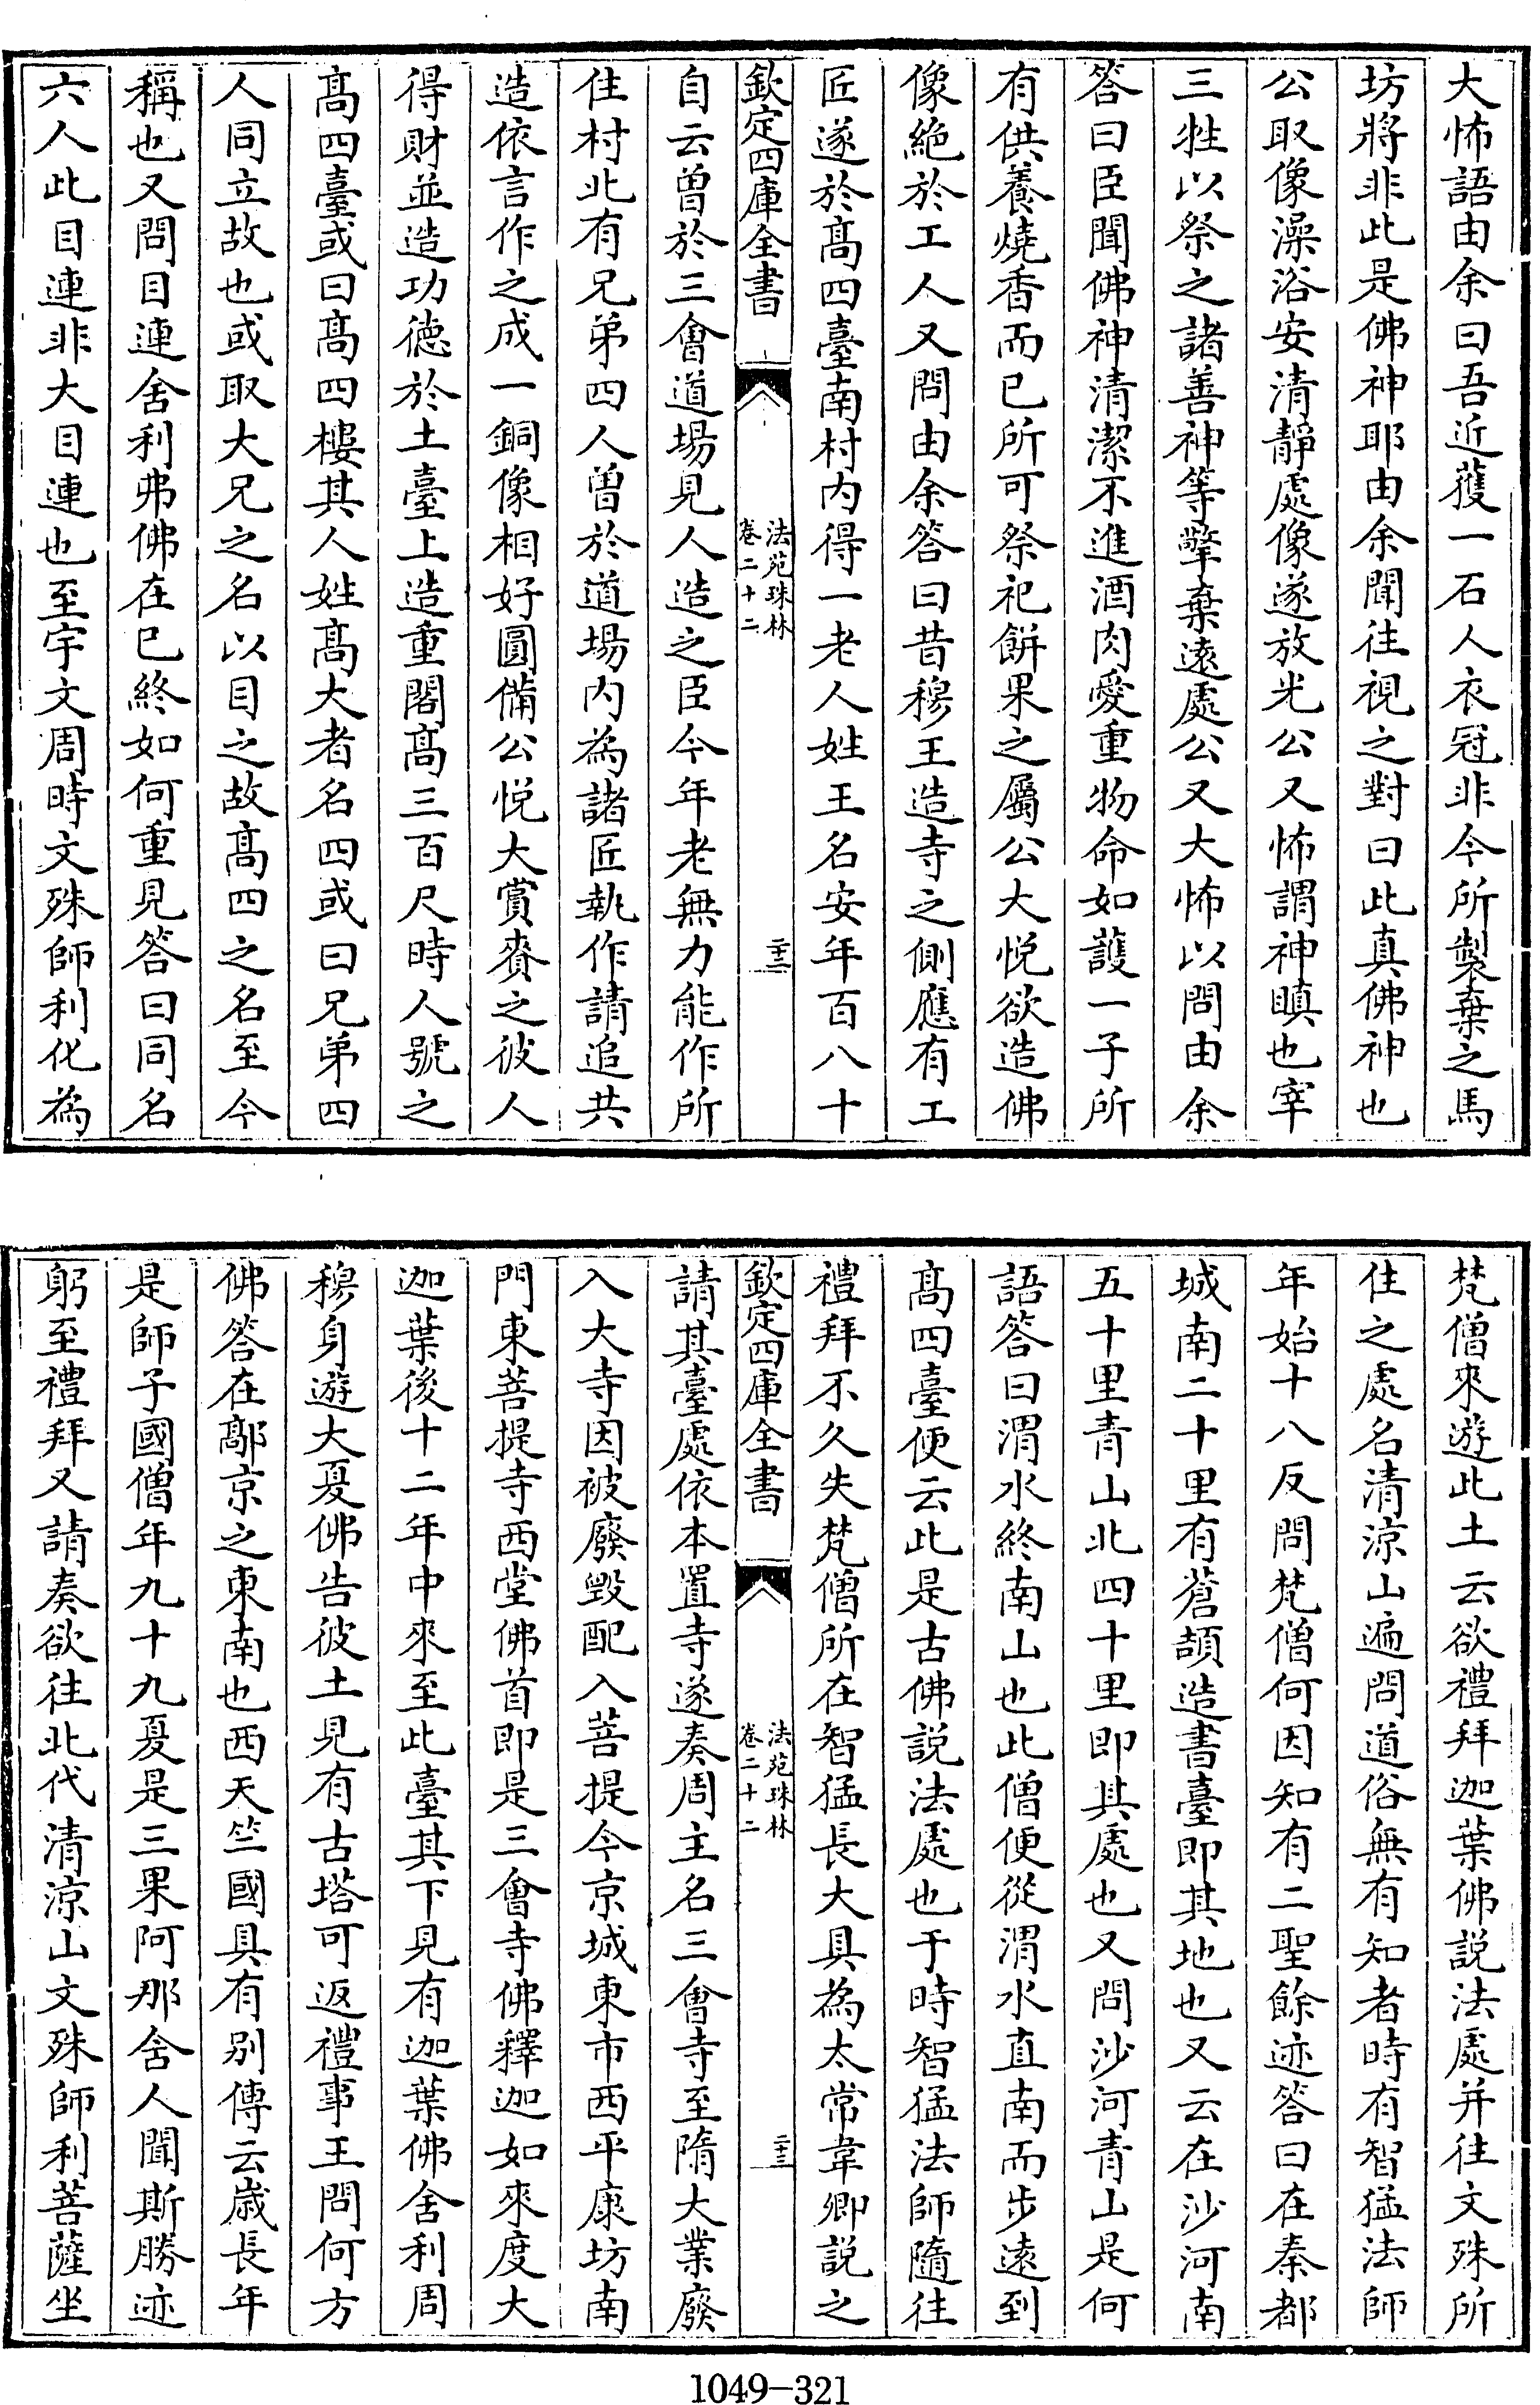 大怖語由余曰吾近獲一石人衣冠非今所製棄之馬
坊將非此是佛神耶由余聞往視之對曰此真佛神也
公取像澡浴安清靜處像遂放光公又怖謂神瞋也宰
三牲以祭之諸善神等擎棄遠處公又大怖以問由余
答曰臣聞佛神清潔不進酒肉愛重物命如護一子所
有供養燒香而已所可祭祀餅果之屬公大悅欲造佛
像絶於工人又問由余答曰昔穆王造寺之側應有工
匠遂於髙四臺南村内得一老人姓王名安年百八十
欽定四庫全書
法苑珠林
卷二十二
二十二
自云曾於三會道場見人造之臣今年老無力能作所
住村北有兄弟四人曾於道場内為諸匠執作請追共
造依言作之成一銅像相好圓備公悅大賞賚之彼人
得財並造功德於土臺上造重閣髙三百尺時人號之
髙四臺或曰髙四樓其人姓髙大者名四或曰兄弟四
人同立故也或取大兄之名以目之故髙四之名至今
稱也又問目連舍利弗佛在已終如何重見答曰同名
六人此目連非大目連也至宇文周時文殊師利化為
梵僧來遊此土云欲禮拜迦葉佛説法處并往文殊所
住之處名清涼山遍問道俗無有知者時有智猛法師
年始十八反問梵僧何因知有二聖餘迹答曰在秦都
城南二十里有蒼頡造書臺即其地也又云在沙河南
五十里青山北四十里即其處也又問沙河青山是何
語答曰渭水終南山也此僧便從渭水直南而步遠到
髙四臺便云此是古佛説法處也于時智猛法師隨往
禮拜不久失梵僧所在智猛長大具為太常韋卿説之
欽定四庫全書
法苑珠林
卷二十二
二十三
請其臺處依本置寺遂奏周主名三會寺至隋大業廢
入大寺因被廢毀配入菩提今京城東市西平康坊南
門東菩提寺西堂佛首即是三會寺佛釋迦如來度大
迦葉後十二年中來至此臺其下見有迦葉佛舍利周
穆身遊大夏佛告彼土見有古塔可返禮事王問何方
佛答在鄗京之東南也西天竺國具有别傳云嵗長年
是師子國僧年九十九夏是三果阿那含人聞斯勝迹
躬至禮拜又請奏欲往北代清涼山文殊師利菩薩坐
1049-321